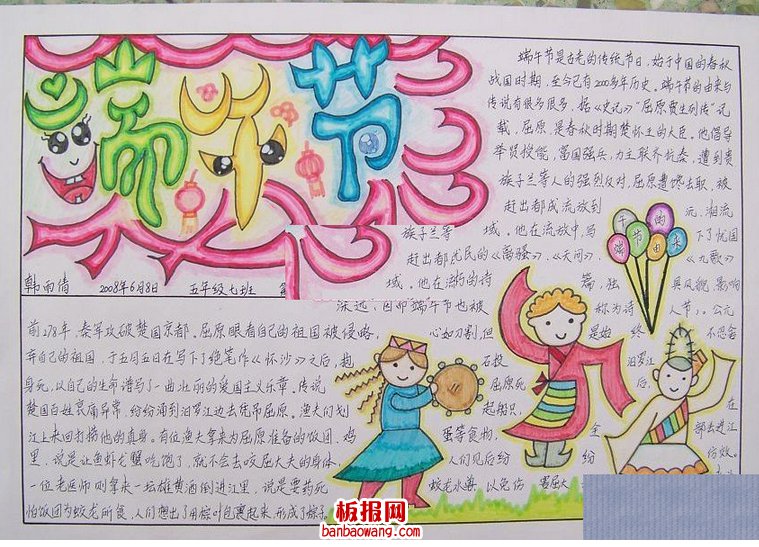 端午节
韩雨倩 2008年6月8日 五年级七班
端午节是古老的传统节日,始于中国的春秋
战国时期,至今已有2000多年历史。端午节的由来与
传说有很多很多,据《史记》“屈原贾生列传”记
载,屈原,是春秋时期楚怀王的大臣。他倡导
举贤授能,富国强兵,力主联齐抗秦,遭到贵
族子兰等人的强烈反对,屈原遭馋去职,被
赶出都城流放到 沅、湘流
族子兰等 域。他在流放中,写 下了忧国
赶出都 民的《离骚》、《天问》、 《九歌》
域。他在流 的诗 篇,独 具风貌,影响
深远,因 端午节也被 称为诗 人节。公元
午节的由来
前278年,秦军攻破楚国京都。屈原眼看自己的祖国被侵略, 心如刀割,但 是始 终 不忍舍
弃自己的祖国,于五月五日在写下了绝笔作《怀沙》之后,抱 石投 汨罗江
身死,以自己的生命谱写了一曲壮丽的爱国主义乐章。传说 屈原死 后, 在
楚国百姓哀痛异常,纷纷涌到汨罗江边去凭吊屈原。渔夫们划 起船只,
江上来回打捞他的真身。有位渔夫拿来为屈原准备的饭团、鸡 蛋等食物, 全 部丢进江
里,说是让鱼虾龙蟹吃饱了,就不会去咬屈大夫的身体, 人们见后纷 纷 仿效。
一位老医师则拿来一坛雄黄酒倒进江里,说是要药死 蛟龙水兽,以免伤 害屈大
怕饭团为蛟龙所食,人们想出了用粽叶包裹起来,形成了粽子
板报网
banbaowang.com